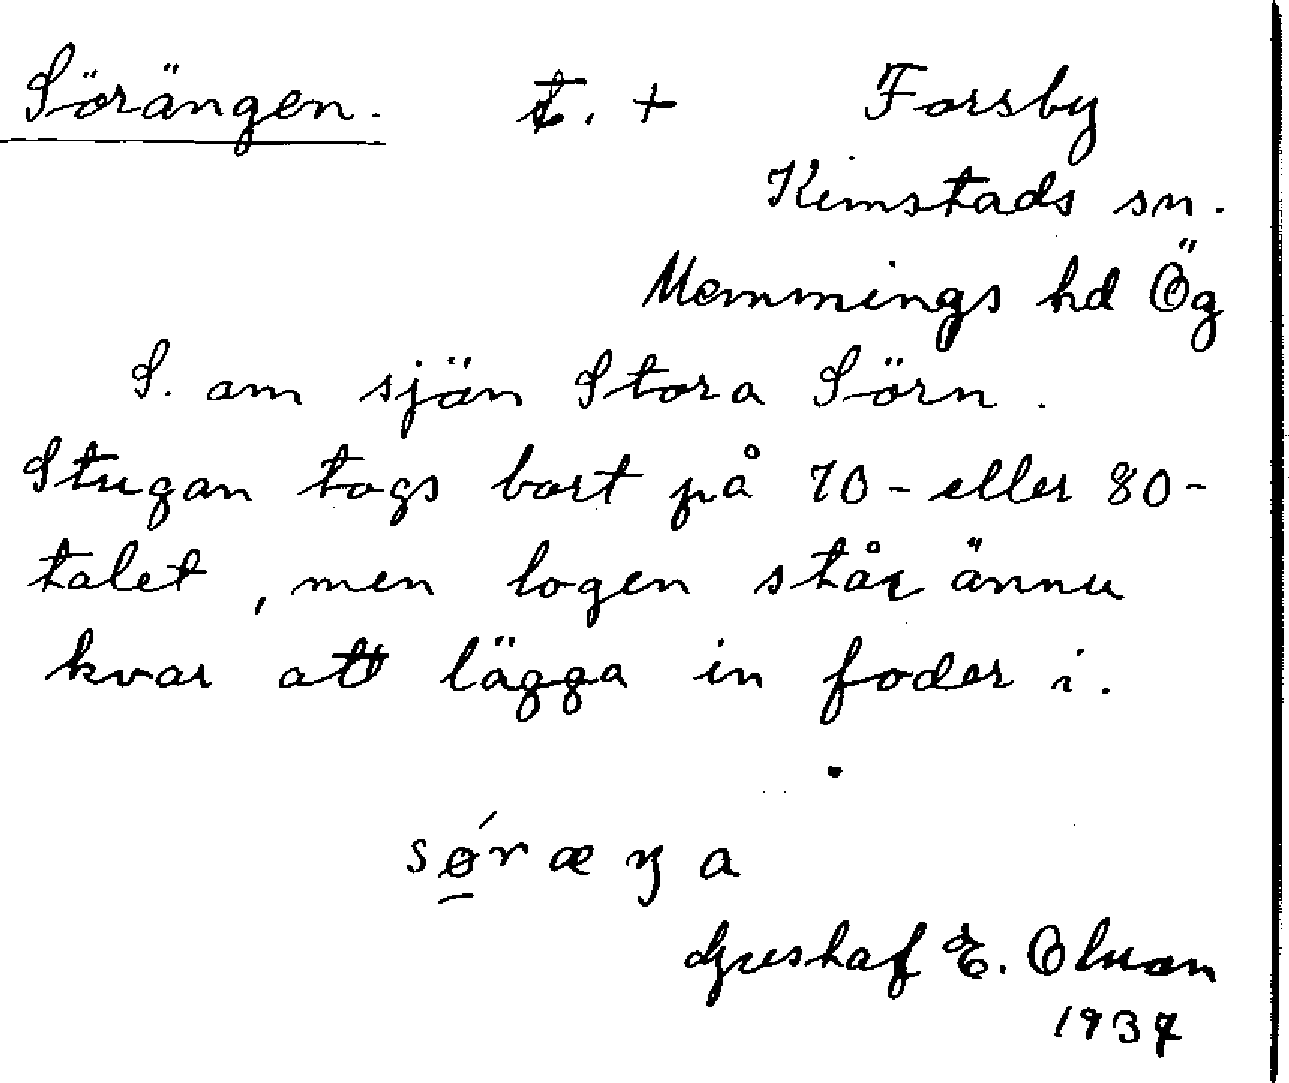 Sörängen. t. + Forsby
Kimstads sn.
Memmings hd Ög
S. om sjön Stora Sörn.
Stugan togs bort på 70- eller 80-
talet, men logen står ännu
kvar att lägga in foder i.
sǿ̱ræŋa
Gustaf E. Olsson
1937